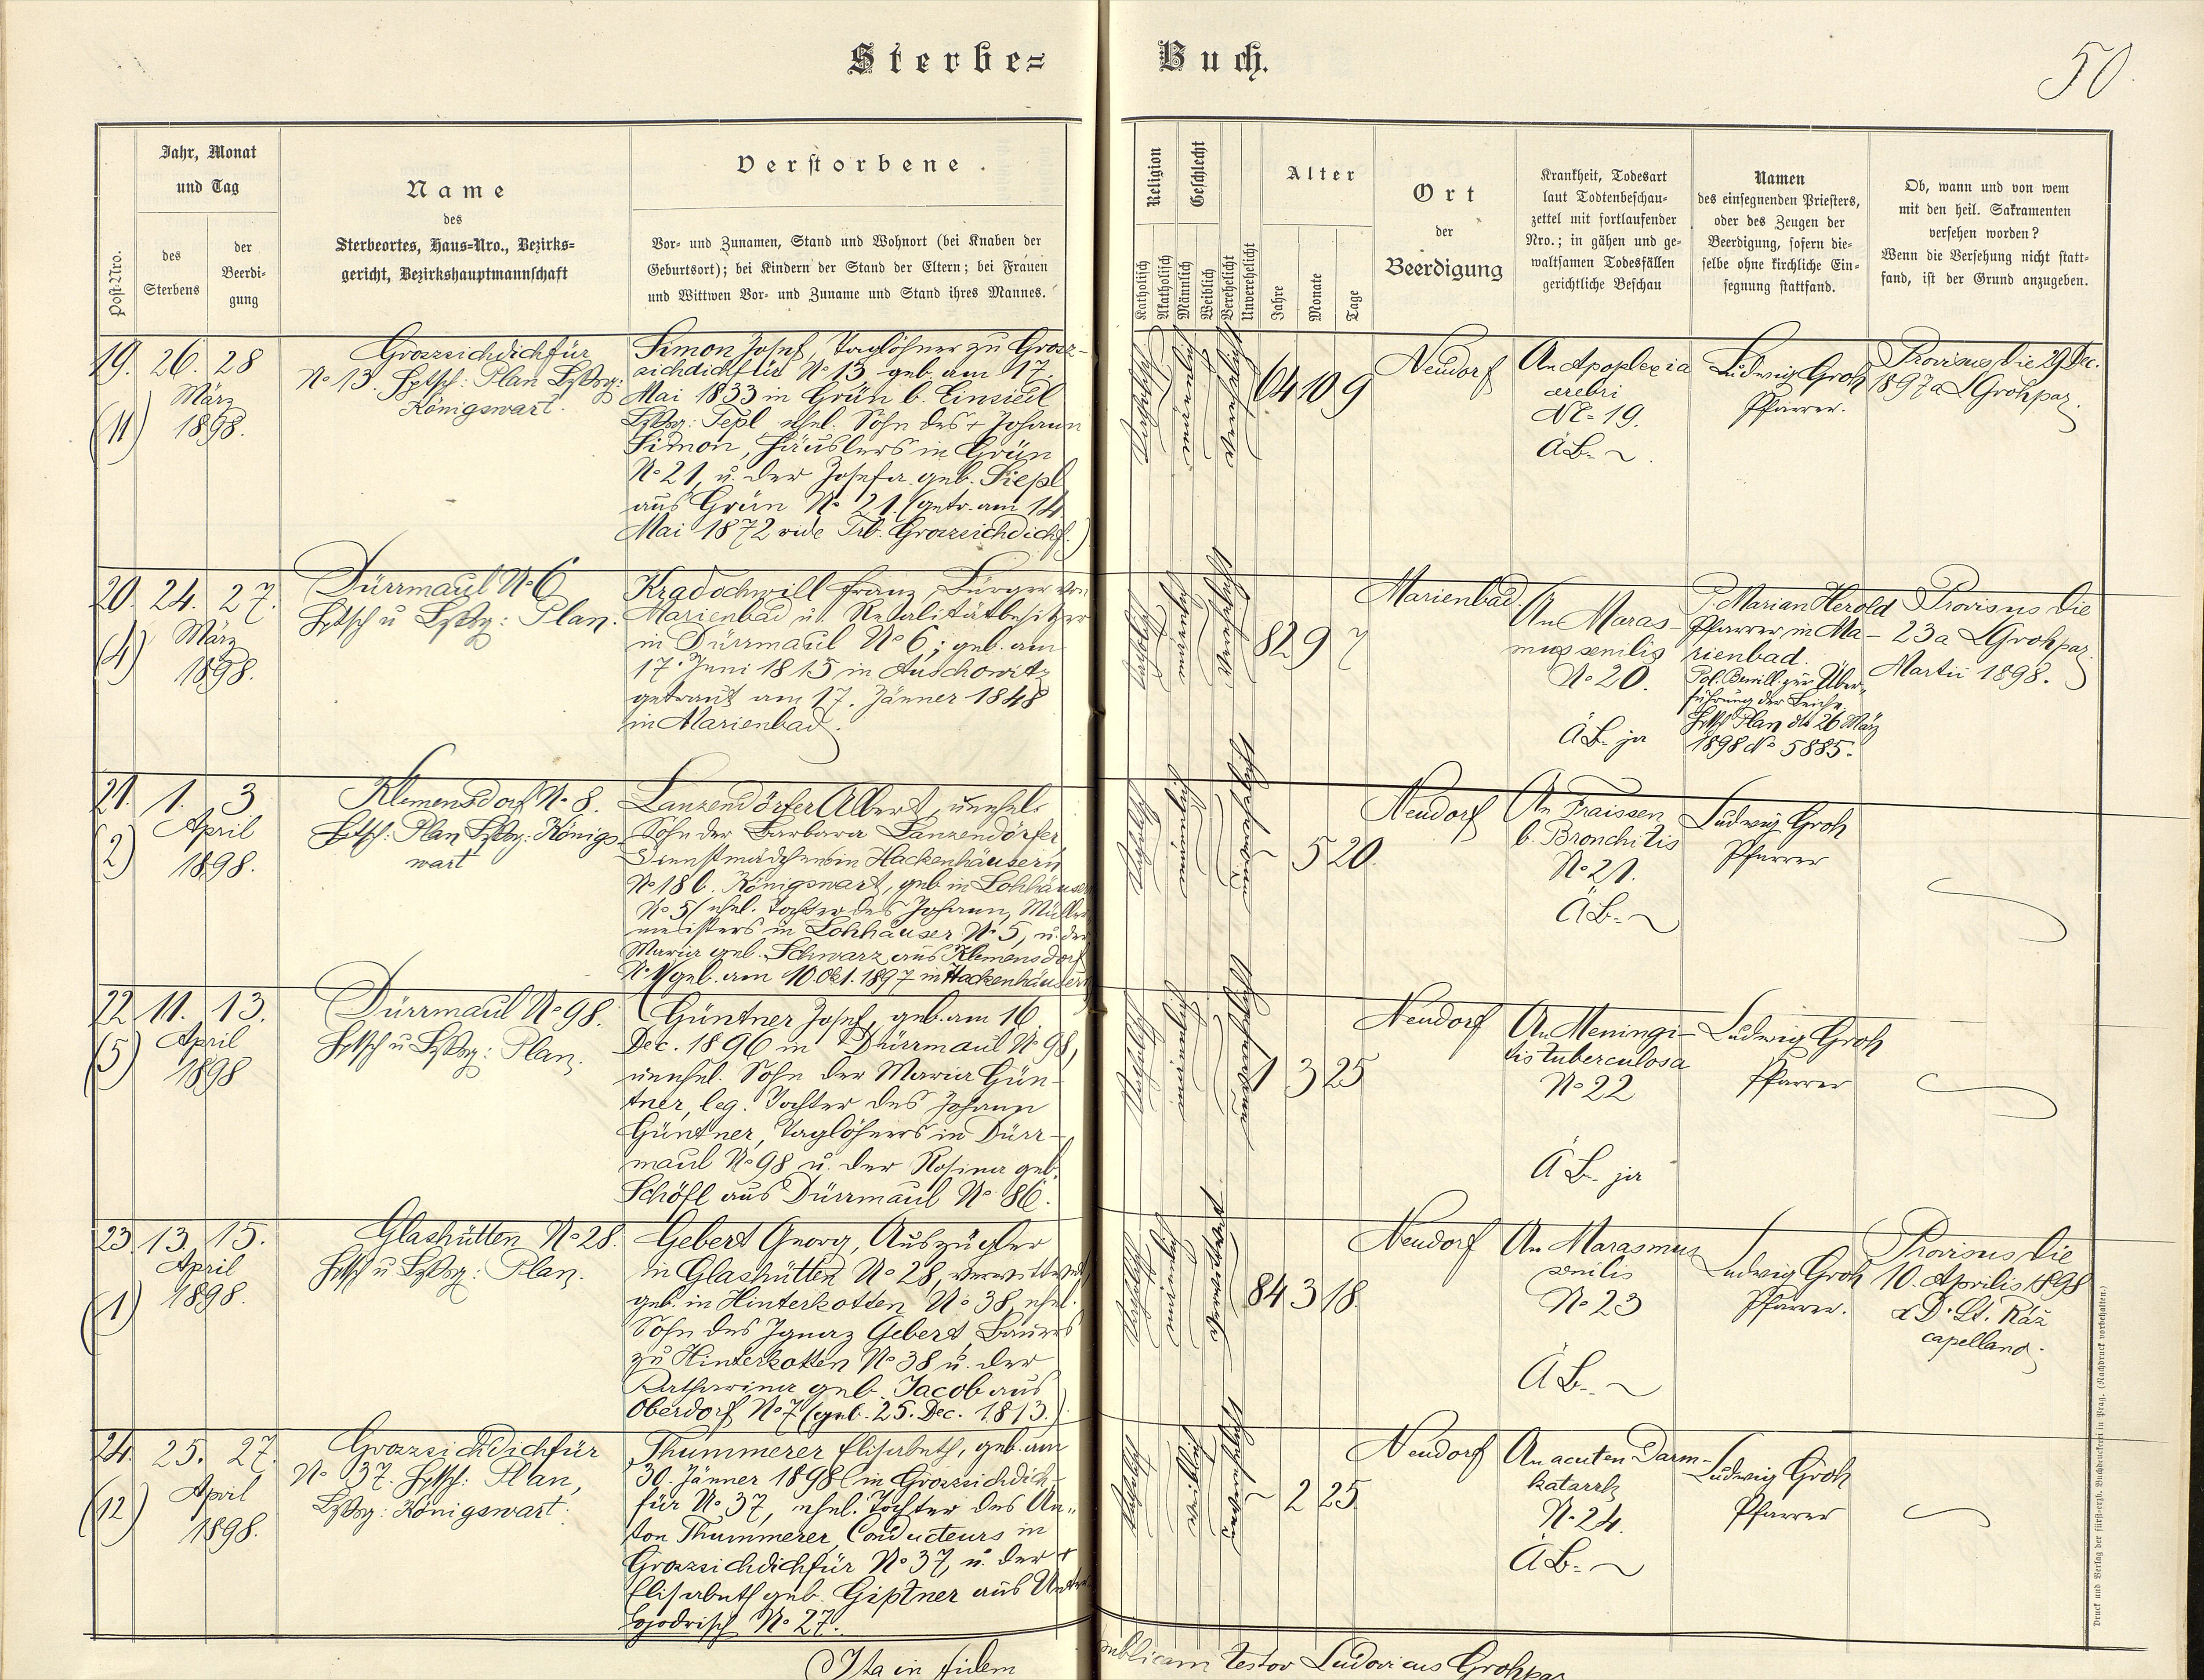 Sterbe-Buch.
50.
Post-Nro.
Jahr, Monat
und Tag
des
Sterbens
der
Beerdi-
gung
Name
des
Sterbeortes, Haus-Nro., Bezirks-
gericht, Bezirkshauptmannschaft
Verstorbene.
Vor- und Zunamen, Stand und Wohnort (bei Knaben der
Geburtsort); bei Kindern der Stand der Eltern; bei Frauen
und Wittwen Vor- und Zuname und Stand ihres Mannes.
Religion
Katholisch
Akatholisch
Geschlecht
Männlich
Weiblich
Verehelicht
Unverehelicht
Alter
Jahre
Monate
Tage
Ort
der
Beerdigung
Krankheit, Todesart
laut Todtenbeschau-
zettel mit fortlaufender
Nro.; in gähen und ge-
waltsamen Todesfällen
gerichtliche Beschau
Namen
des einsegnenden Priesters,
oder des Zeugen der
Beerdigung, sofern die-
selbe ohne kirchliche Ein-
segnung stattfand.
Ob, wann und von wem
mit den heil. Sakramenten
versehen worden?
Wenn die Versehung nicht statt-
fand, ist der Grund anzugeben.
19. 26. 28
März
(11) 1898.
Grossichdichfür
No 13. Hptsch: Plan Bzksg:
Königswart.
Simon Josef, Taglöhner zu Gross-
sichdichfür No 13 geb. am 17.
Mai 1833 in Grün b. Einsiedl
Bzksg: Tepl ehel. Sohn des + Johann
Simon, Häuslers in Grün
No 21, u. der Josefa geb. Siepl
aus Grün No 21. (getr. am 14
Mai 1872 vide Trb. Grossichdichf.)
katholisch
männlich
verehelicht
64 10 9
Neudorf
An Apoplexia
cerebri
No 19.
ÄB.
Ludwig Groh
Pfarrer.
Provisus die 29 Dec.
1897 a LGroh par.
20. 24. 27.
März
(4) 1898.
Dürrmaul No 6
Hptsch u Bzksg: Plan.
Kradochwill Franz, Bürger von
Marienbad u. Realitätbesitzer
in Dürrmaul No 6; geb. am
17. Juni 1815 in Auschowitz
getraut am 17. Jänner 1848
in Marienbad.
katholisch
männlich
verehelicht
82 9 7
Marienbad.
An Maras-
mus senilis
No 20.
ÄB. ja
P. Marian Herold
Pfarrer in Ma-
rienbad.
Pol. Bewill. zur Über-
führung der Leiche,
Hptsch Plan dto 26 März
1898 No 5885.
Provisus die
23 a LGroh par.
Martii 1898.
21. 1. 3
April
(2) 1898.
Klemensdorf No 8.
Hptsch: Plan Bzksg: Königs-
wart
Lanzendörfer Albert, unehel.
Sohn der Barbara Lanzendörfer,
Dienstmädchens in Hackenhäusern
No 18 b. Königswart, geb in Lohhäuser
No 5 (ehel. Tochter des Johann, Müller
meisters in Lohhäuser No 5, u. der
Maria geb. Schwarz aus Klemensdorf
No 1) geb. am 10 Okt. 1897 in Hackenhäusern
katholisch
männlich
unverehelicht
5 20.
Neudorf
An Fraissen
b. Bronchitis
No 21.
ÄB.
Ludwig Groh
Pfarrer
22 11. 13.
April
(5) 1898
Dürrmaul No 98.
Hptsch u Bzksg: Plan.
Güntner Josef, geb. am 16
Dec. 1896 in Dürrmaul No 98,
unehel. Sohn der Maria Gün-
tner, leg. Tochter des Johann
Güntner, Taglöhners in Dürr-
maul No 98 u. der Rosina geb.
Schöfl aus Dürrmaul No 86.
katholisch
männlich
unverehelicht
1 3 25
Neudorf
An Meningi-
tis tuberculosa
No 22
ÄB. ja
Ludwig Groh
Pfarrer
23. 13. 15.
April
(1) 1898.
Glashütten No 28.
Hptsch u Bzksg: Plan.
Gebert Georg, Auszügler
in Glashütten No 28, verwittwet
geb. in Hinterkotten No 38, ehel.
Sohn des Ignaz Gebert Bauers
zu Hinterkotten No 38 u. der
Katharina geb. Jacob aus
Oberdorf No 7 (geb. 25. Dec. 1813.)
katholisch
männlich
verwittwet
84 3 18.
Neudorf
An Marasmus
senilis
No 23
ÄB.
Ludwig Groh
Pfarrer.
Provisus die
10. Aprilis 1898
a D. St. Ráz
capellano.
24. 25. 27.
April
(12) 1898.
Grossichdichfür
No 37. Hptsch: Plan,
Bzksg: Königswart.
Thummerer Elisabeth, geb. am
30. Jänner 1898 in Grossichdich-
für No 37, ehel. Tochter des An-
ton Thummerer, Conducteurs in
Grossichdichfür No 37, u. der +
Elisabeth geb. Giptner aus Unter
Godrisch No 27.
katholisch
weiblich
unverehelicht
2 25.
Neudorf
An acuten Darm-
katarrh
No 24.
ÄB.
Ludwig Groh
Pfarrer
Ita in fidem publicam testor Ludovicus Groh par
Druck und Verlag der fürst-erzb. Buchdruckerei in Prag. (Nachdruck vorbehalten.)